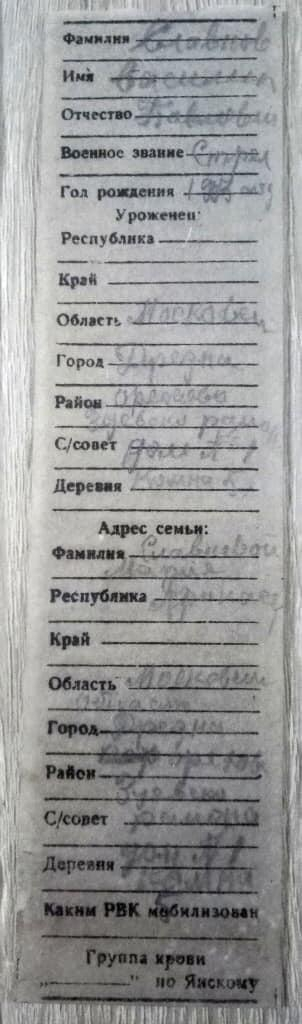 Фамилия Славнов
Имя Василий
Отчество Павлович
Военное звание Стрел
Год рождения
Уроженец:
Республика
Край
Область Московск
Город Дрезна
Район Орехово
Зуевски район
С/совет дом № 1
Деревня Комна
Адрес семьи:
Фамилия Славновой
Мария
Республика
Край
Область Московск
Город Дрезна
Район Орехов
Зуевски
С/совет района
Деревня дом № 1
комна
Каким РВК мобилизован
Группа крови
„ " по Янскому